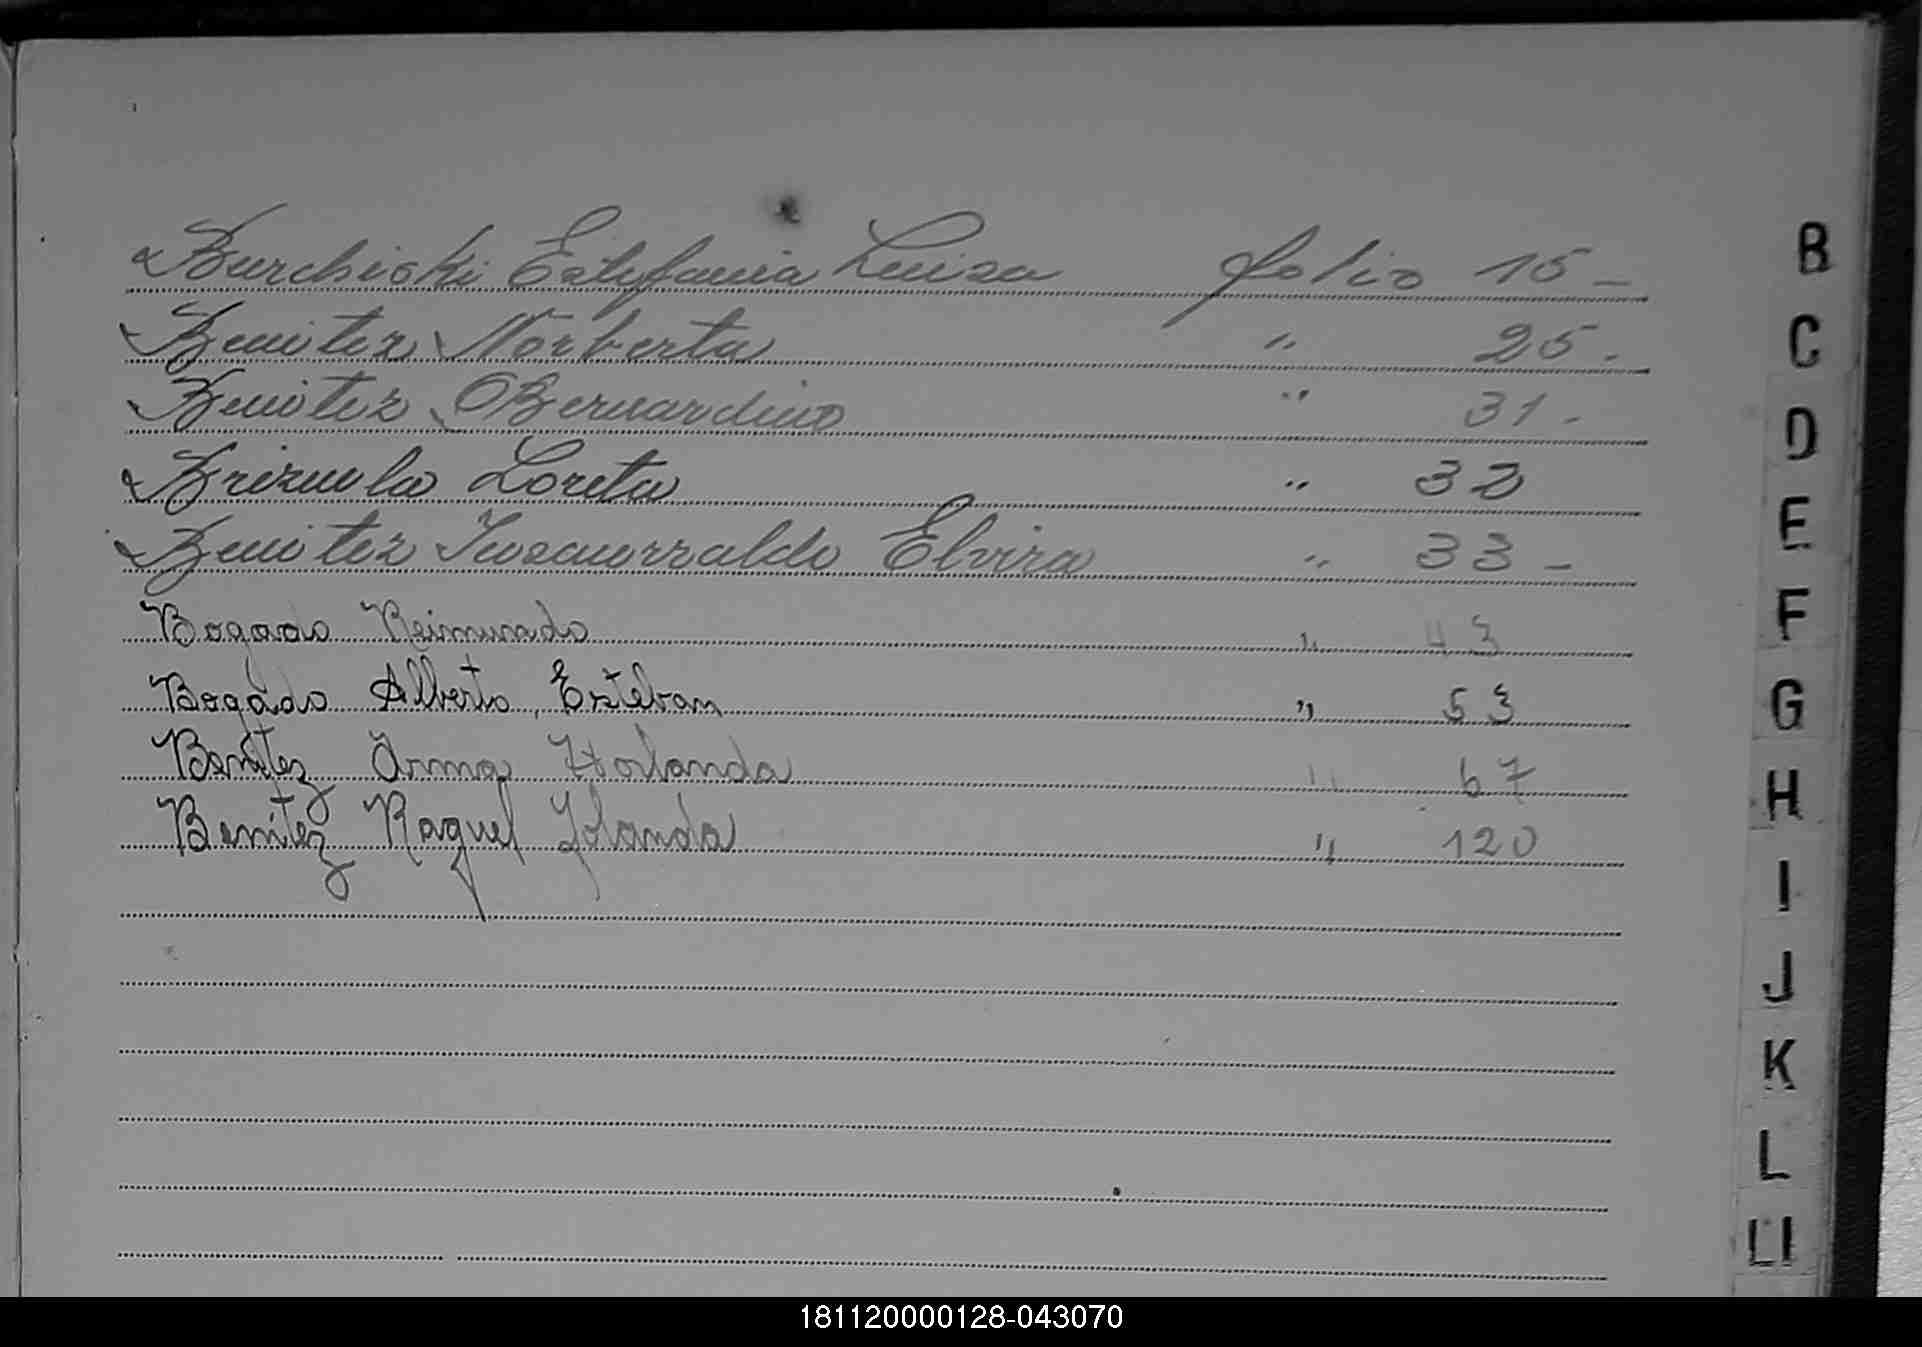 Burchiski Estefania Luisa folio 15 -
Benitez Norberta " 25.
Benitez Bernardino " 31 -
Brizuela Loreta " 32
Benitez Insaurralde Elvira " 33 -
Bogado Reimundo " 43
Bogado Alberto, Esteban " 53
Benítez Irma Horlanda " 67
Benítez Raquel Jolanda " 120
B
C
D
E
F
G
H
I
J
K
L
Ll
181120000128-043070